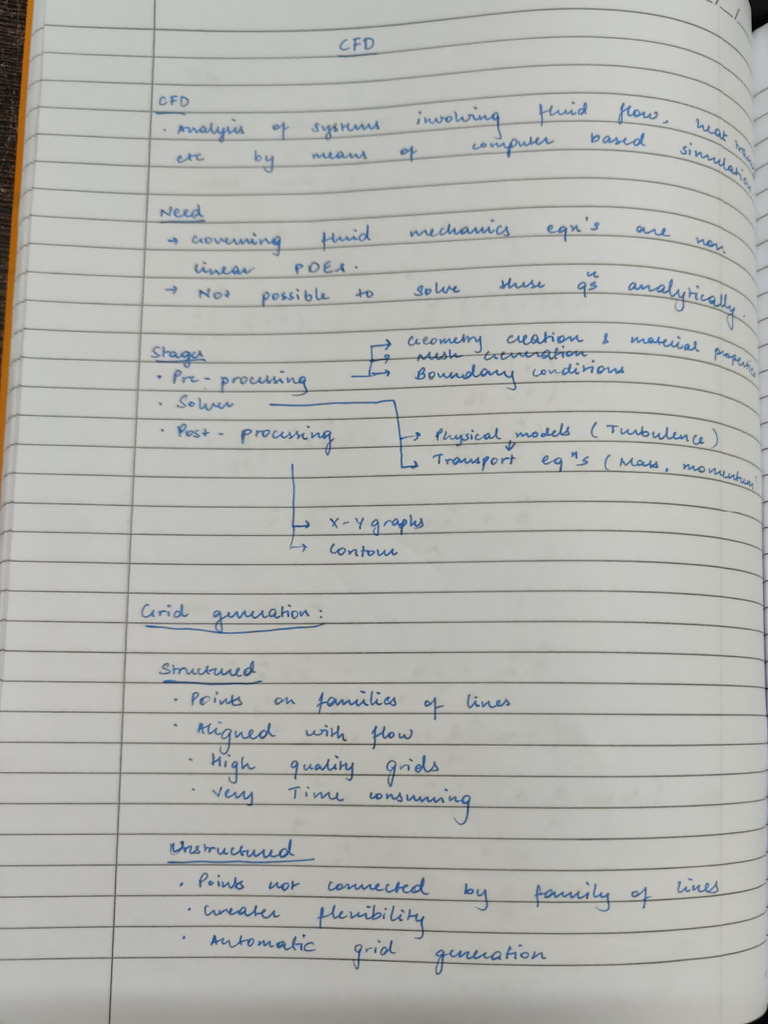 CFD
CFD
· Analysis of systems involving fluid flow, heat
etc by means of computer based simulation
Need
→ Governing fluid mechanics eqn's are non
linear PDEs.
→ Not possible to solve these qⁿs analytically.
Stages
→ Geometry creation & material properties
→ Mesh Generation
· Pre-processing → Boundary conditions
· Solver
· Post-processing → Physical models (Turbulence)
→ Transport eqⁿs (Mass, momentum
→ X-Y graphs
→ contour
Grid generation:
Structured
· Points on families of lines
· Aligned with flow
· High quality grids
· Very Time consuming
Unstructured
· Points not connected by family of lines
· Greater flexibility
· Automatic grid generation